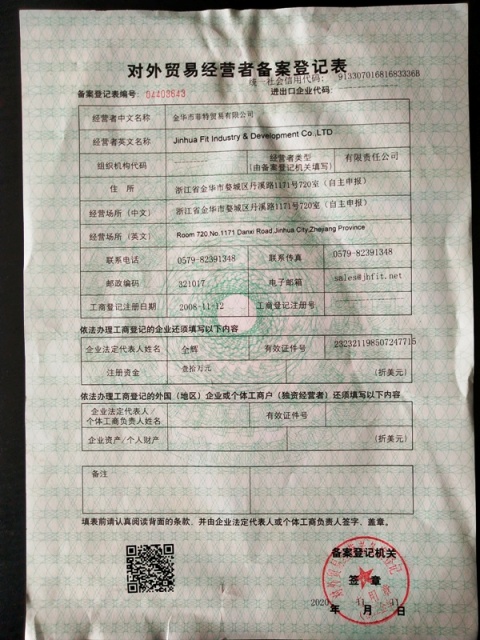 对外贸易经营者备案登记表
统一社会信用代码: 913307016816833368
备案登记表编号: 04403643 进出口企业代码:
经营者中文名称 金华市菲特贸易有限公司
经营者英文名称 Jinhua Fit Industry & Development Co.,LTD
组织机构代码 经营者类型 (由备案登记机关填写) 有限责任公司
住 所 浙江省金华市婺城区丹溪路1171号720室(自主申报)
经营场所(中文) 浙江省金华市婺城区丹溪路1171号720室(自主申报)
经营场所(英文) Room 720,No.1171 Danxi Road,Jinhua City,Zhejiang Province
联系电话 0579-82391348 联系传真 0579-82391348
邮政编码 321017 电子邮箱 sales@jhfit.net
工商登记注册日期 2008-11-12 工商登记注册号
依法办理工商登记的企业还须填写以下内容
企业法定代表人姓名 有效证件号 232321198507247715
注册资金 壹拾万元 (折美元)
依法办理工商登记的外国(地区)企业或个体工商户(独资经营者)还须填写以下内容
企业法定代表人/
个体工商负责人姓名 有效证件号
企业资产/个人财产 (折美元)
备注
填表前请认真阅读背面的条款,并由企业法定代表人或个体工商负责人签字、盖章。
备案登记机关
签 章
2020 11 11
年 月 日